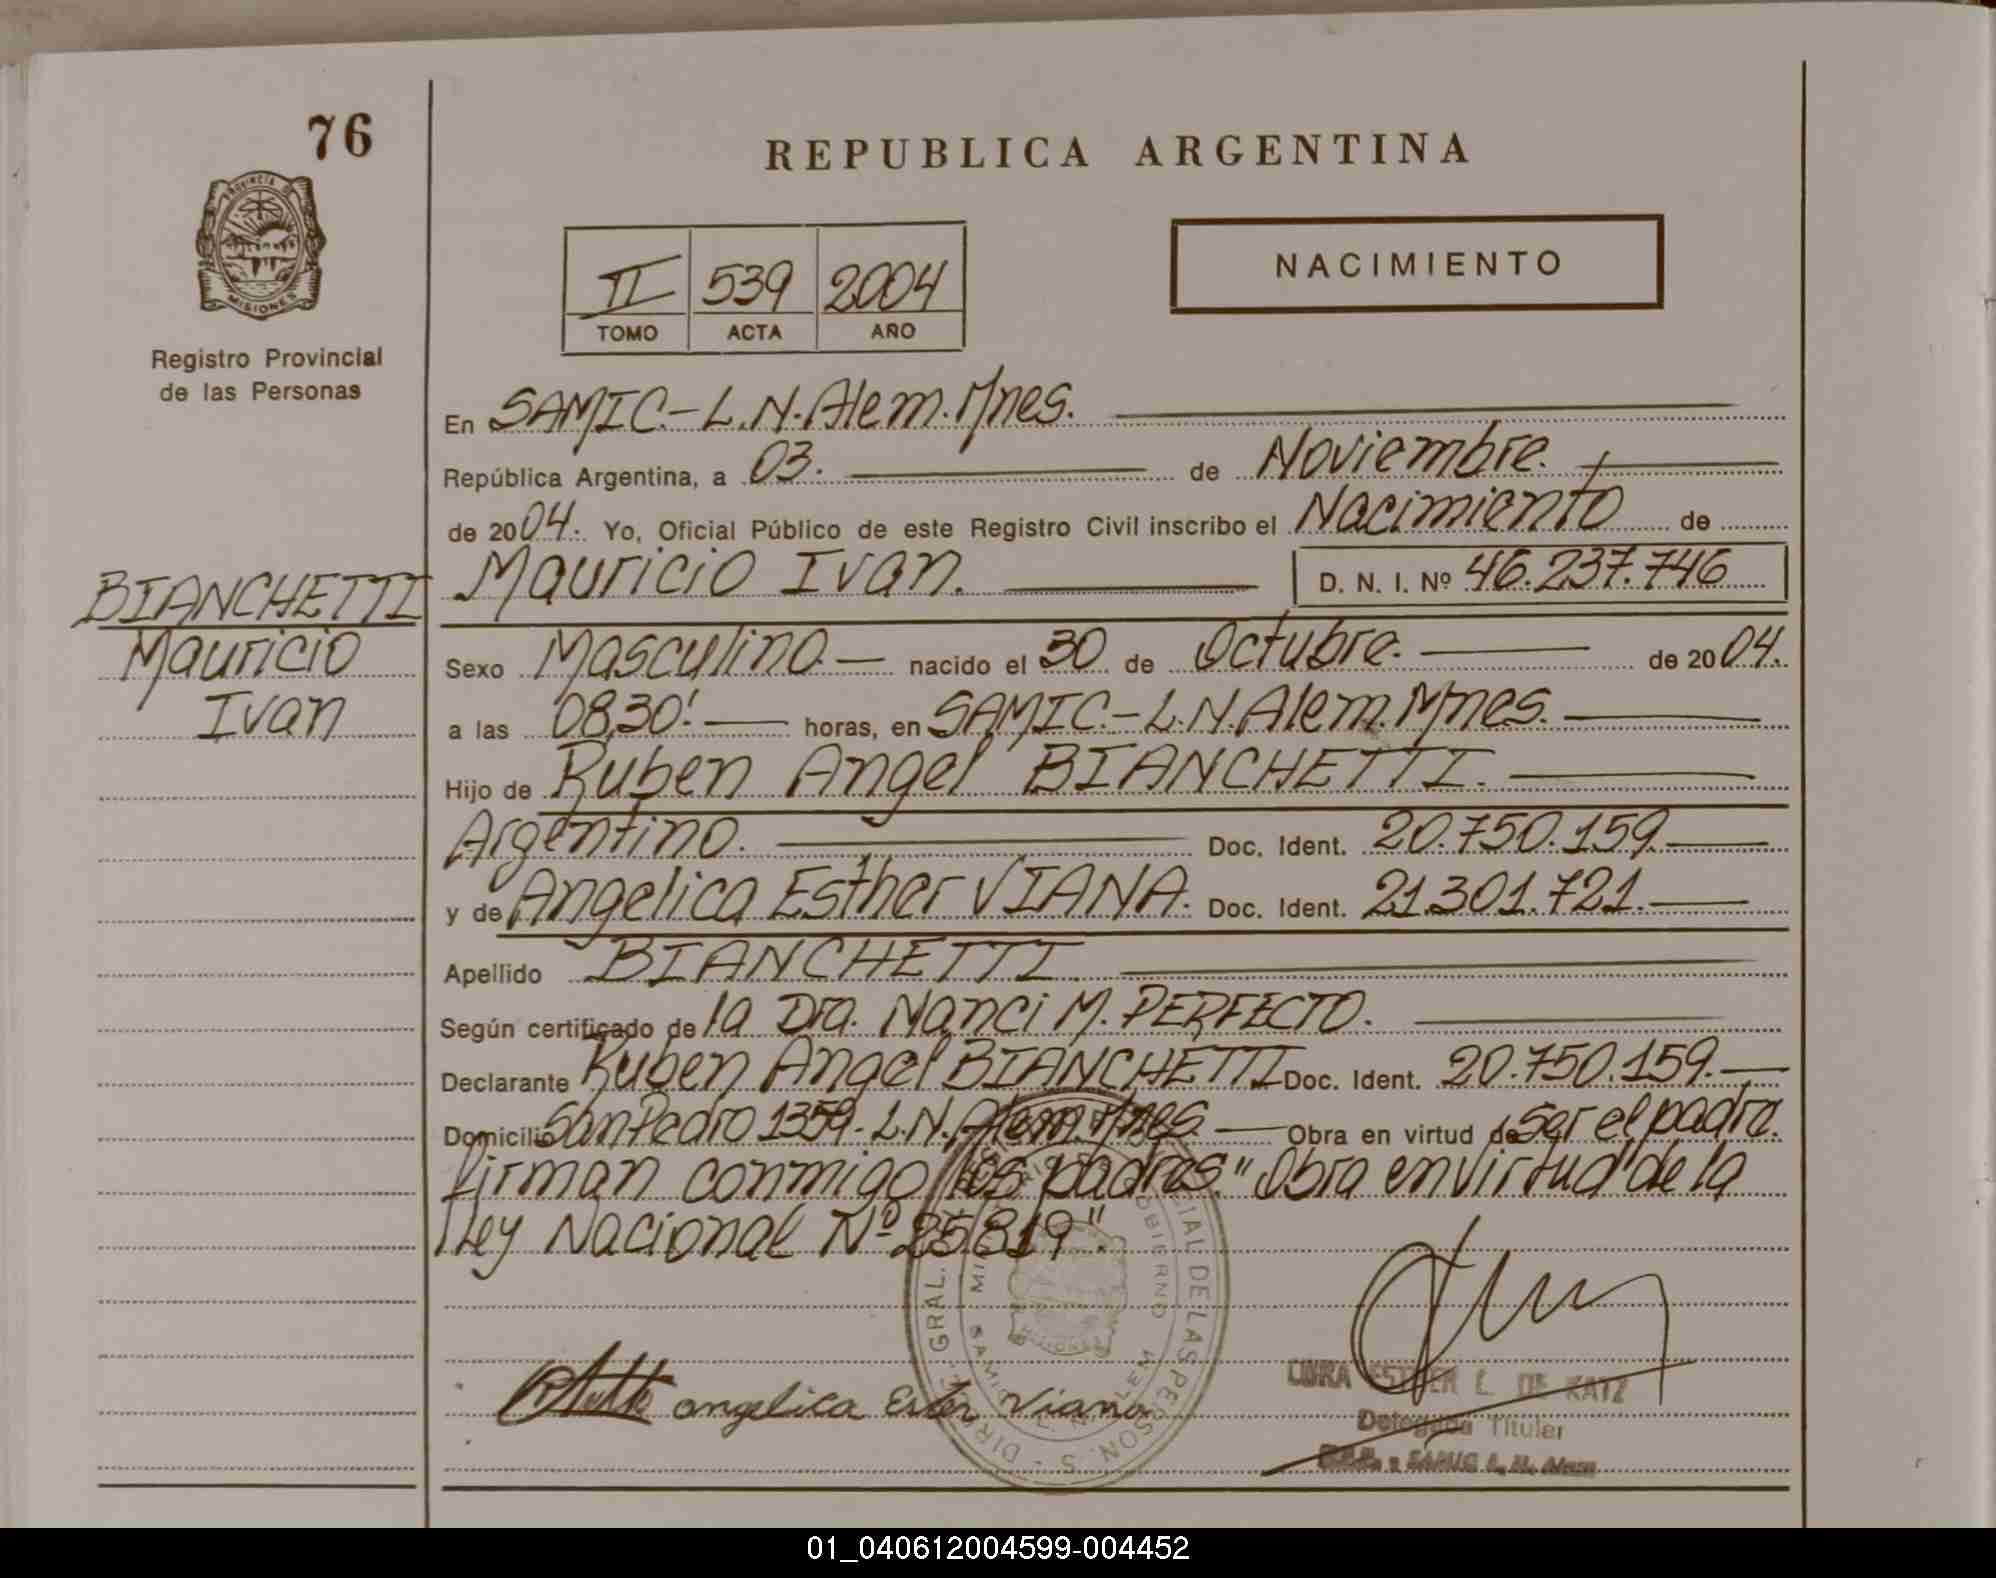 76
REPUBLICA ARGENTINA
PROVINCIA DE
MISIONES
NACIMIENTO
II 539 2004
TOMO ACTA AÑO
Registro Provincial
de las Personas
En SAMIC.- L.N. Alem. Mnes.
República Argentina, a 03. de Noviembre.
de 2004. Yo, Oficial Público de este Registro Civil inscribo el Nacimiento de
BIANCHETTI
Mauricio
Ivan
Mauricio Ivan. D. N. I. Nº 46.237.746
Sexo Masculino.- nacido el 30 de Octubre. de 2004.
a las 08,30'. horas, en SAMIC.- L.N. Alem. Mnes.
Hijo de Ruben Angel BIANCHETTI.
Argentino. Doc. Ident. 20.750.159.
y de Angelica Esther VIANA. Doc. Ident. 21.301.721.
Apellido BIANCHETTI
Según certificado de la Dra. Nanci M. PERFECTO.
Declarante Ruben Angel BIANCHETTI Doc. Ident. 20.750.159.
Domicilio San Pedro 1359.- L.N. Alem. Mnes. Obra en virtud de Ser el padre.
firman conmigo los padres. "Obra en virtud de la
Ley Nacional Nº 25819".
angelica Ester Viana
ESTHER L. DE KATZ
Delegada Titular
01_040612004599-004452